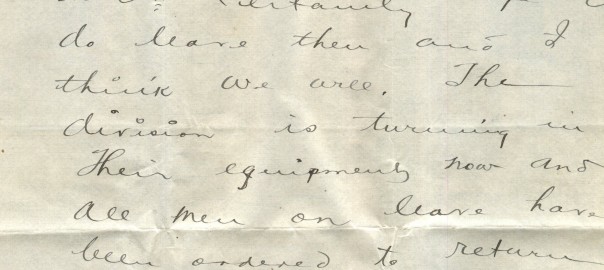 certainly
do leave then and I
think we will. The
division is turning in
their equipment now and
all men on leave have
been ordered to return